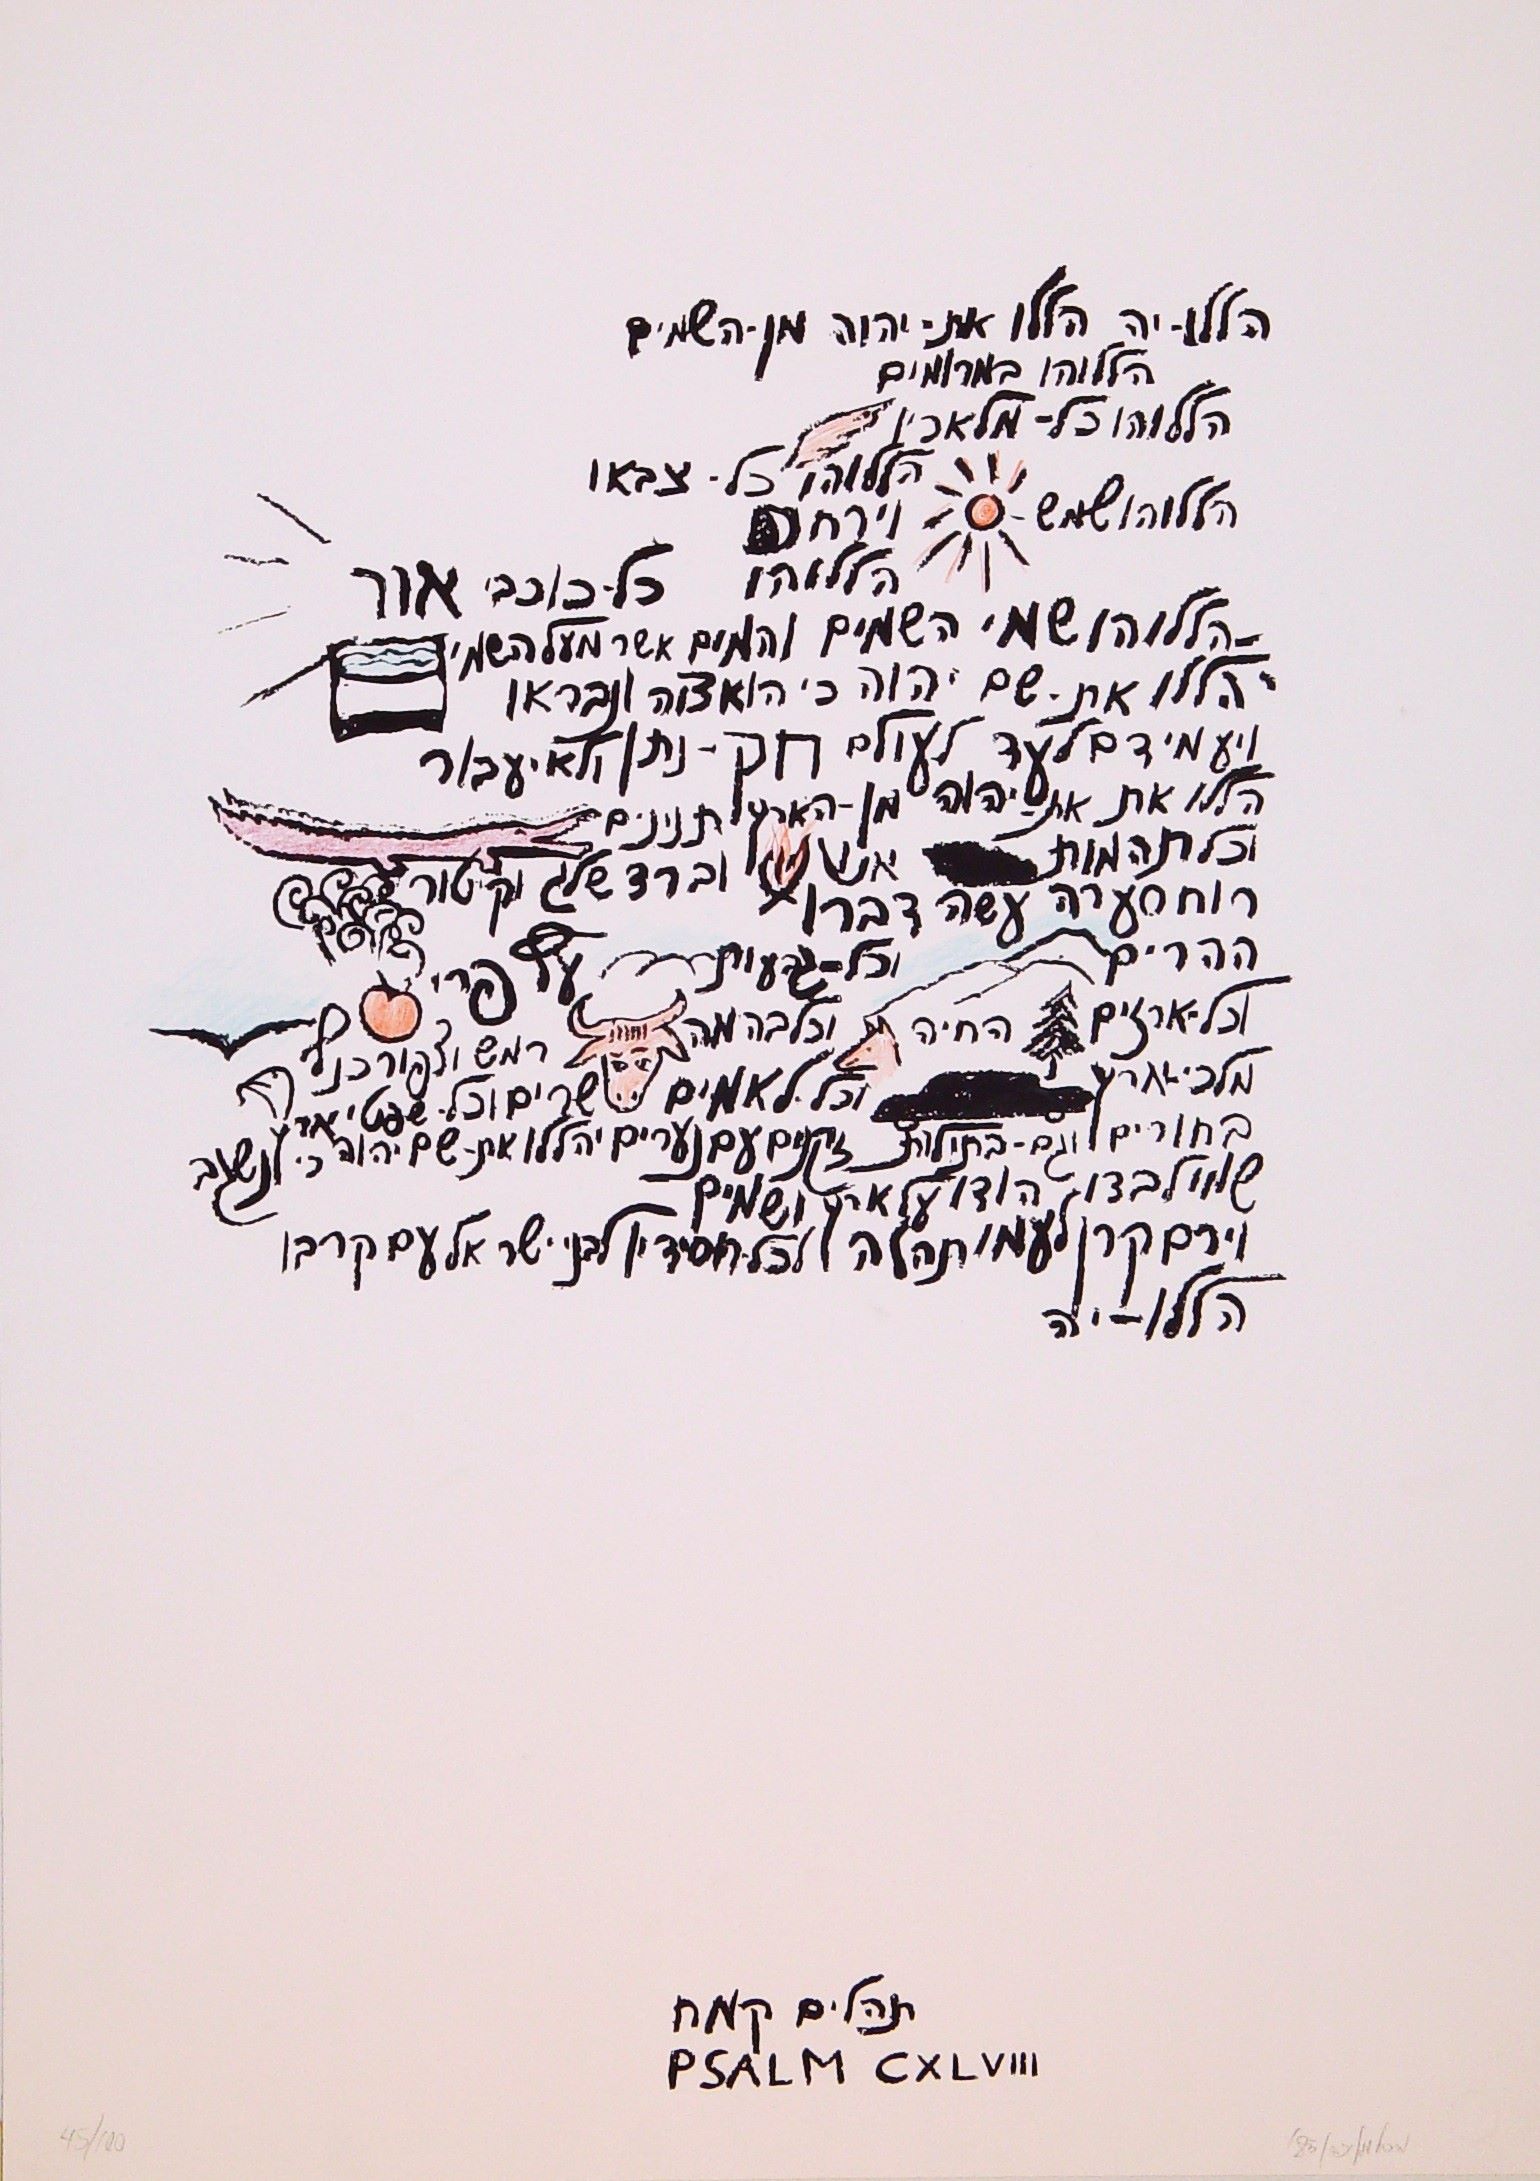 הללו-יה הללו את-יהוה מן-השמים
הללוהו במרומים
הללוהו כל-מלאכיו
הללוהו כל-צבאו
הללוהו שמש וירח
הללוהו כל-כוכבי אור
הללוהו שמי השמים והמים אשר מעל השמי
יהללו את-שם יהוה כי הוא צוה ונבראו
ויעמידם לעד לעולם חק-נתן ולא יעבור
הללו את את-יהוה מן-הארץ תנינים
וכל תהמות אש וברד שלג וקיטור
רוח סערה עשה דברו
ההרים וכל-גבעות עץ פרי
וכל-ארזים החיה וכל בהמה רמש וצפור כנף
מלכי-ארץ וכל-לאמים שרים וכל-שפטי ארץ
בחורים וגם-בתולות זקנים עם נערים יהללו את-שם יהוה כי נשגב
שמו לבדו הודו על ארץ ושמים
וירם קרן לעמו תהלה לכל חסידיו לבני ישראל עם קרבו
הללו-יה
תהלים קמח
PSALM CXLVIII
45/100